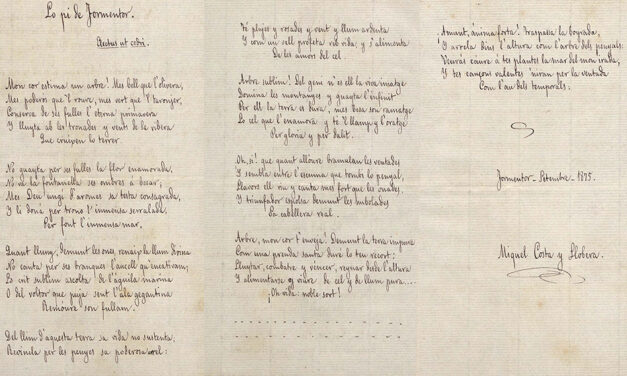 Lo pi de Formentor.
Electus ut cedri.
Mon cor estima un arbre! Mes vell que l'olivera,
Mes poderos que 'l roure, mes vert que 'l taronjer,
Conserva de ses fulles l'eterna primavera
Y lluyta ab les tronades y vents de la ribera
Que cruixen lo terrer.
No guayta per ses fulles la flor enamorada,
No va la fontanella ses ombres a besar;
Mes Deu ungí d'aromes sa testa consagrada,
Y li doná per trono l'inmensa serralada,
Per font l'inmensa mar.
Quant lluny, demunt les ones, renaix la llum divina
No canta per ses branques l'aucell qu'encativam;
Lo crit sublim escolta de l'águila marina
O del voltor que puja sent l'ala gegantina
Remoure son fullam.
Del llim d'aquesta terra sa vida no sustenta,
Revincla per les penyes sa poderosa rel:
Té pluyes y rosades y vent y llum ardenta
Y com un vell profeta reb vida y s'alimenta
De les amors del cel.
Arbre sublim! Del geni n'es ell la viva imatge
Domina les montanyes y guayta l'infinit
Per ell la terra es dura, mes besa son ramatge
Lo cel que l'enamora y té 'l llamp y l'oratge
Per gloria y per dalit.
Oh, sí! que quant alloure bramulan les ventades
Y sembla entre l'escuma que tombi lo penyal,
Llavors ell riu y canta mes fort que les onades,
Y triumfador espolsa demunt les nuvolades
Sa cabellera real.
Arbre, mon cor t'enveja! Demunt la terra impura
Com una prenda santa duré lo teu recort:
Lluytar, constant y vencer, reynar desde l'altura
Y alimentarse y viure de cel y de llum pura....
¡Oh vida noble sort!
Amunt, ánima forta! Traspassa la boyrada,
Y arrela dins l'altura com l'arbre dels penyals:
Veurás caure á tes plantes la mar del mon irada;
Y tes cançons valentes 'nirán per la ventada
Com l'au dels temporals;
Formentor — Setembre — 1875.
Miguel Costa y Llobera.